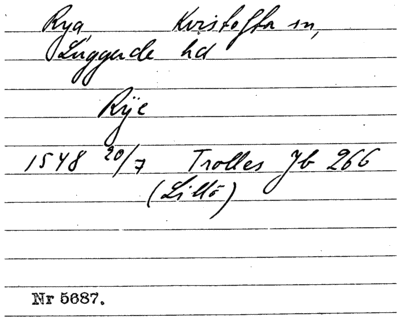 Rya Kristoffta sn,
Luggude hd
Rÿe
1548 20/7 Trolles Jb 266
(Lillö)
Nr 5687.